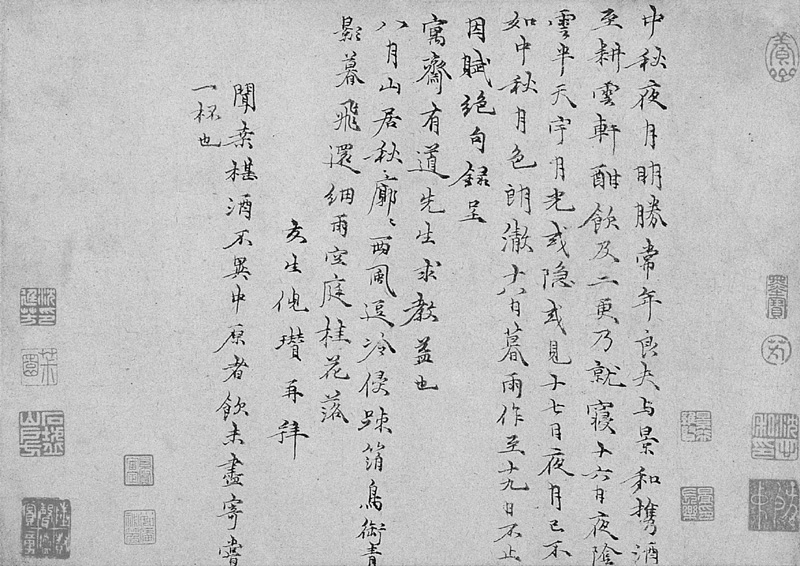 中秋夜月明勝常年良夫与景和携酒
至耕雲軒酣飲及二更乃就寢十六日夜陰
雲半天宇月光或隱或見十七日夜月已不
如中秋月色朗澈十八日暮雨作至十九日不止
因賦絕句錄呈
寓齋有道先生求教益也
八月山居秋廓〻西風逗冷侵踈箔鳥銜青
影暮飛還細雨空庭桂花落
友生倪瓚再拜
聞桒椹酒不異中原者飲未盡寄嘗
一杯也